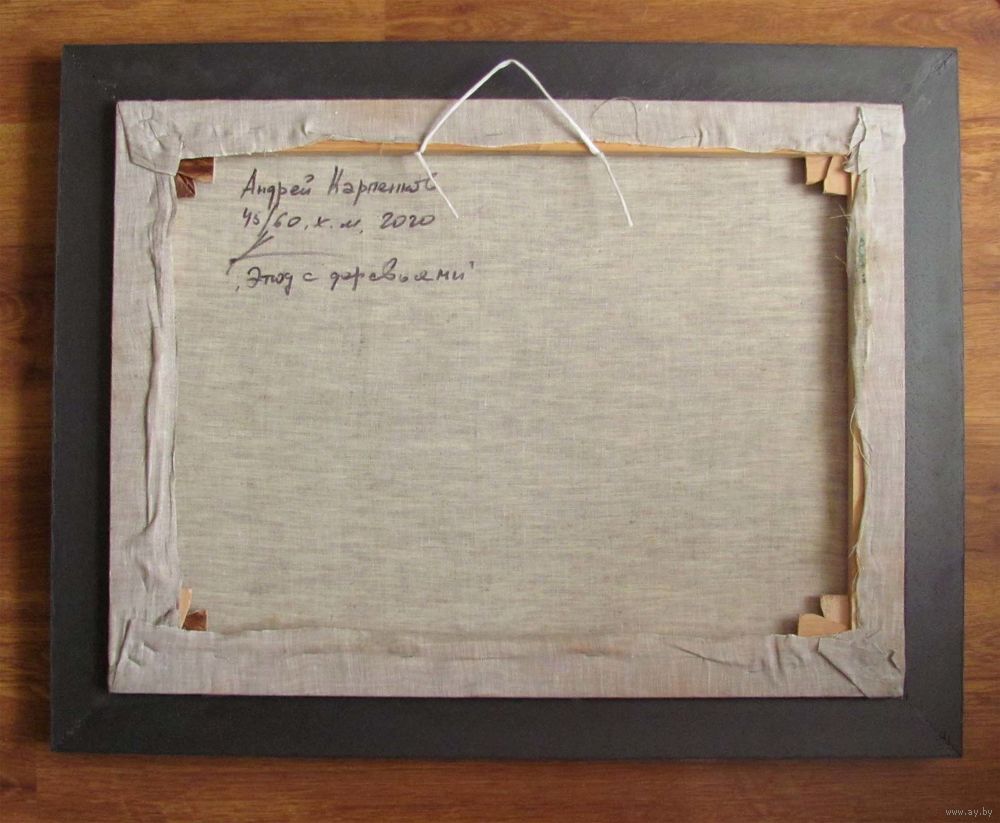 Андрей Карпенков
45/60, х.м, 2020
"Этюд с деревьями"
www.ay.by